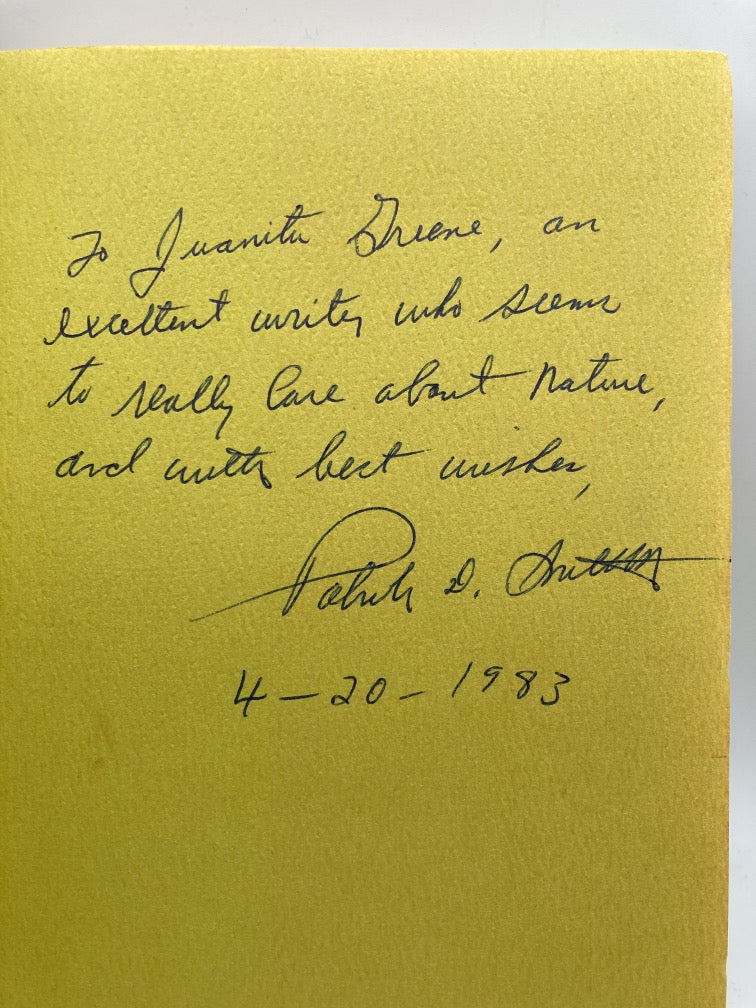 To Juanita Greene, an
excellent writer who seems
to really care about nature,
and with best wishes,
Patrick D. Smith
4-20-1983